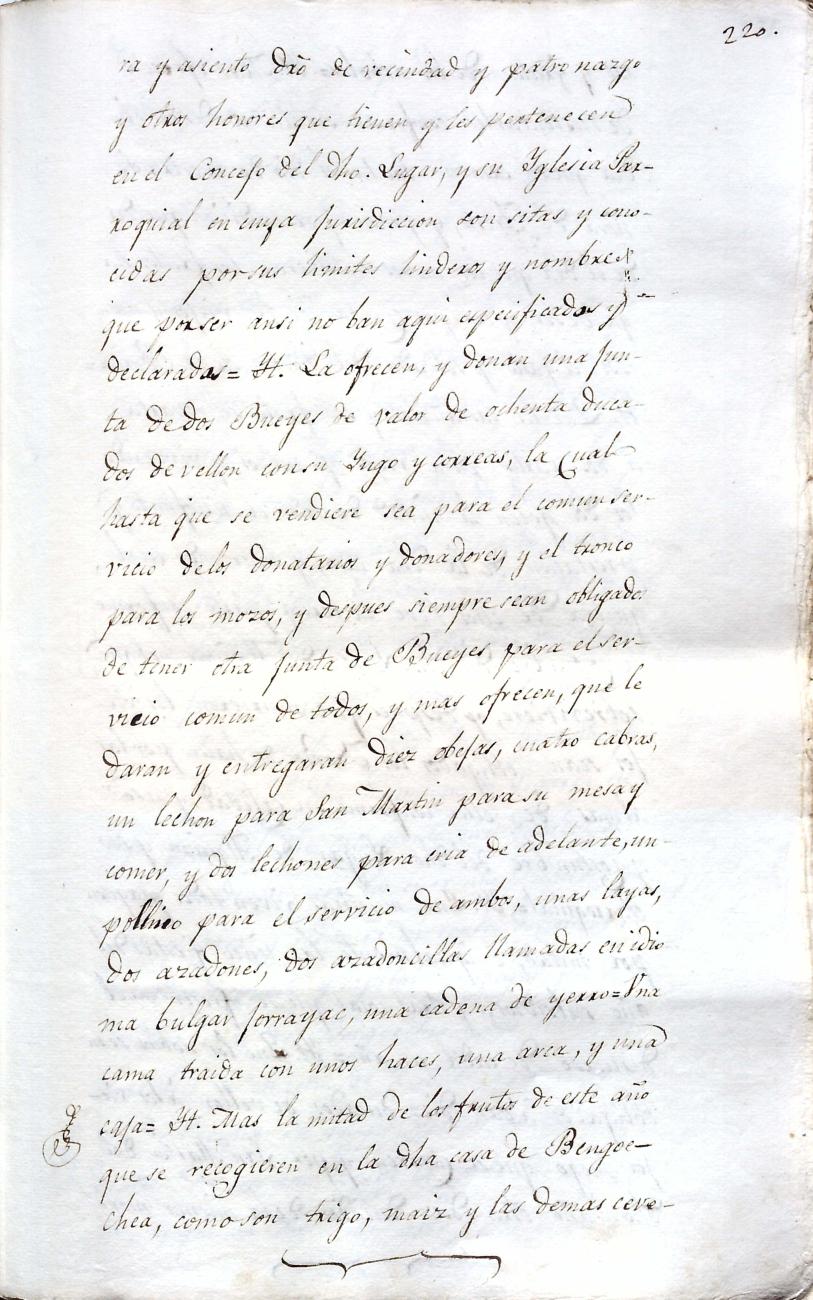 220.
ra y asiento dro de vecindad y patronazgo
y otros honores que tienen y les pertenecen
en el Concejo del dho. Lugar, y su Yglesia Par-
roquial en cuya jurisdiccion son sitas y cono-
cidas por sus limites linderos y nombres
que por ser ansi no ban aqui especificadas y
declaradas = Yt. La ofrecen, y donan una jun-
ta de dos Bueyes de valor de ochenta duca-
dos de vellon con su Yugo y correas, la qual
hasta que se vendiere sea para el comun ser-
vicio de los donatarios y donadores, y el tronco
para los mozos, y despues siempre sean obligados
de tener otra junta de Bueyes para el ser-
vicio comun de todos, y mas ofrecen, que le
daran y entregaran diez obejas, cuatro cabras,
un lechon para San Martin para su mesa y
comer, y dos lechones para cria de adelante, un
pollino para el servicio de ambos, unas layas,
dos azadones, dos azadoncillas llamadas en idio
ma bulgar jorrayac, una cadena de yerro = Vna
cama traida con unos haces, una arca, y una
caja = Yt. Mas la mitad de los frutos de este año
que se recogieren en la dha casa de Bengoe-
chea, como son trigo, maiz y las demas ceve-